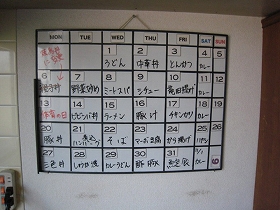 MON TUE WED THU FRI SAT SUN
1 2 3 4 5
うどん 中華丼 とんかつ カレー
6 7 8 9 10 11 12
親子丼 野菜炒め ミートスパ シチュー 竜田揚げ カレー
13 14 15 16 17 18 19
ビビンバ丼 ラーメン 豚汁 チキンカツ カレー
20 21 22 23 24 25 26
豚丼 煮込ハンバーグ そば マーボ豆腐 から揚げ カレー
27 28 29 30 31
三色丼 しょうが焼 カレーうどん 酢豚